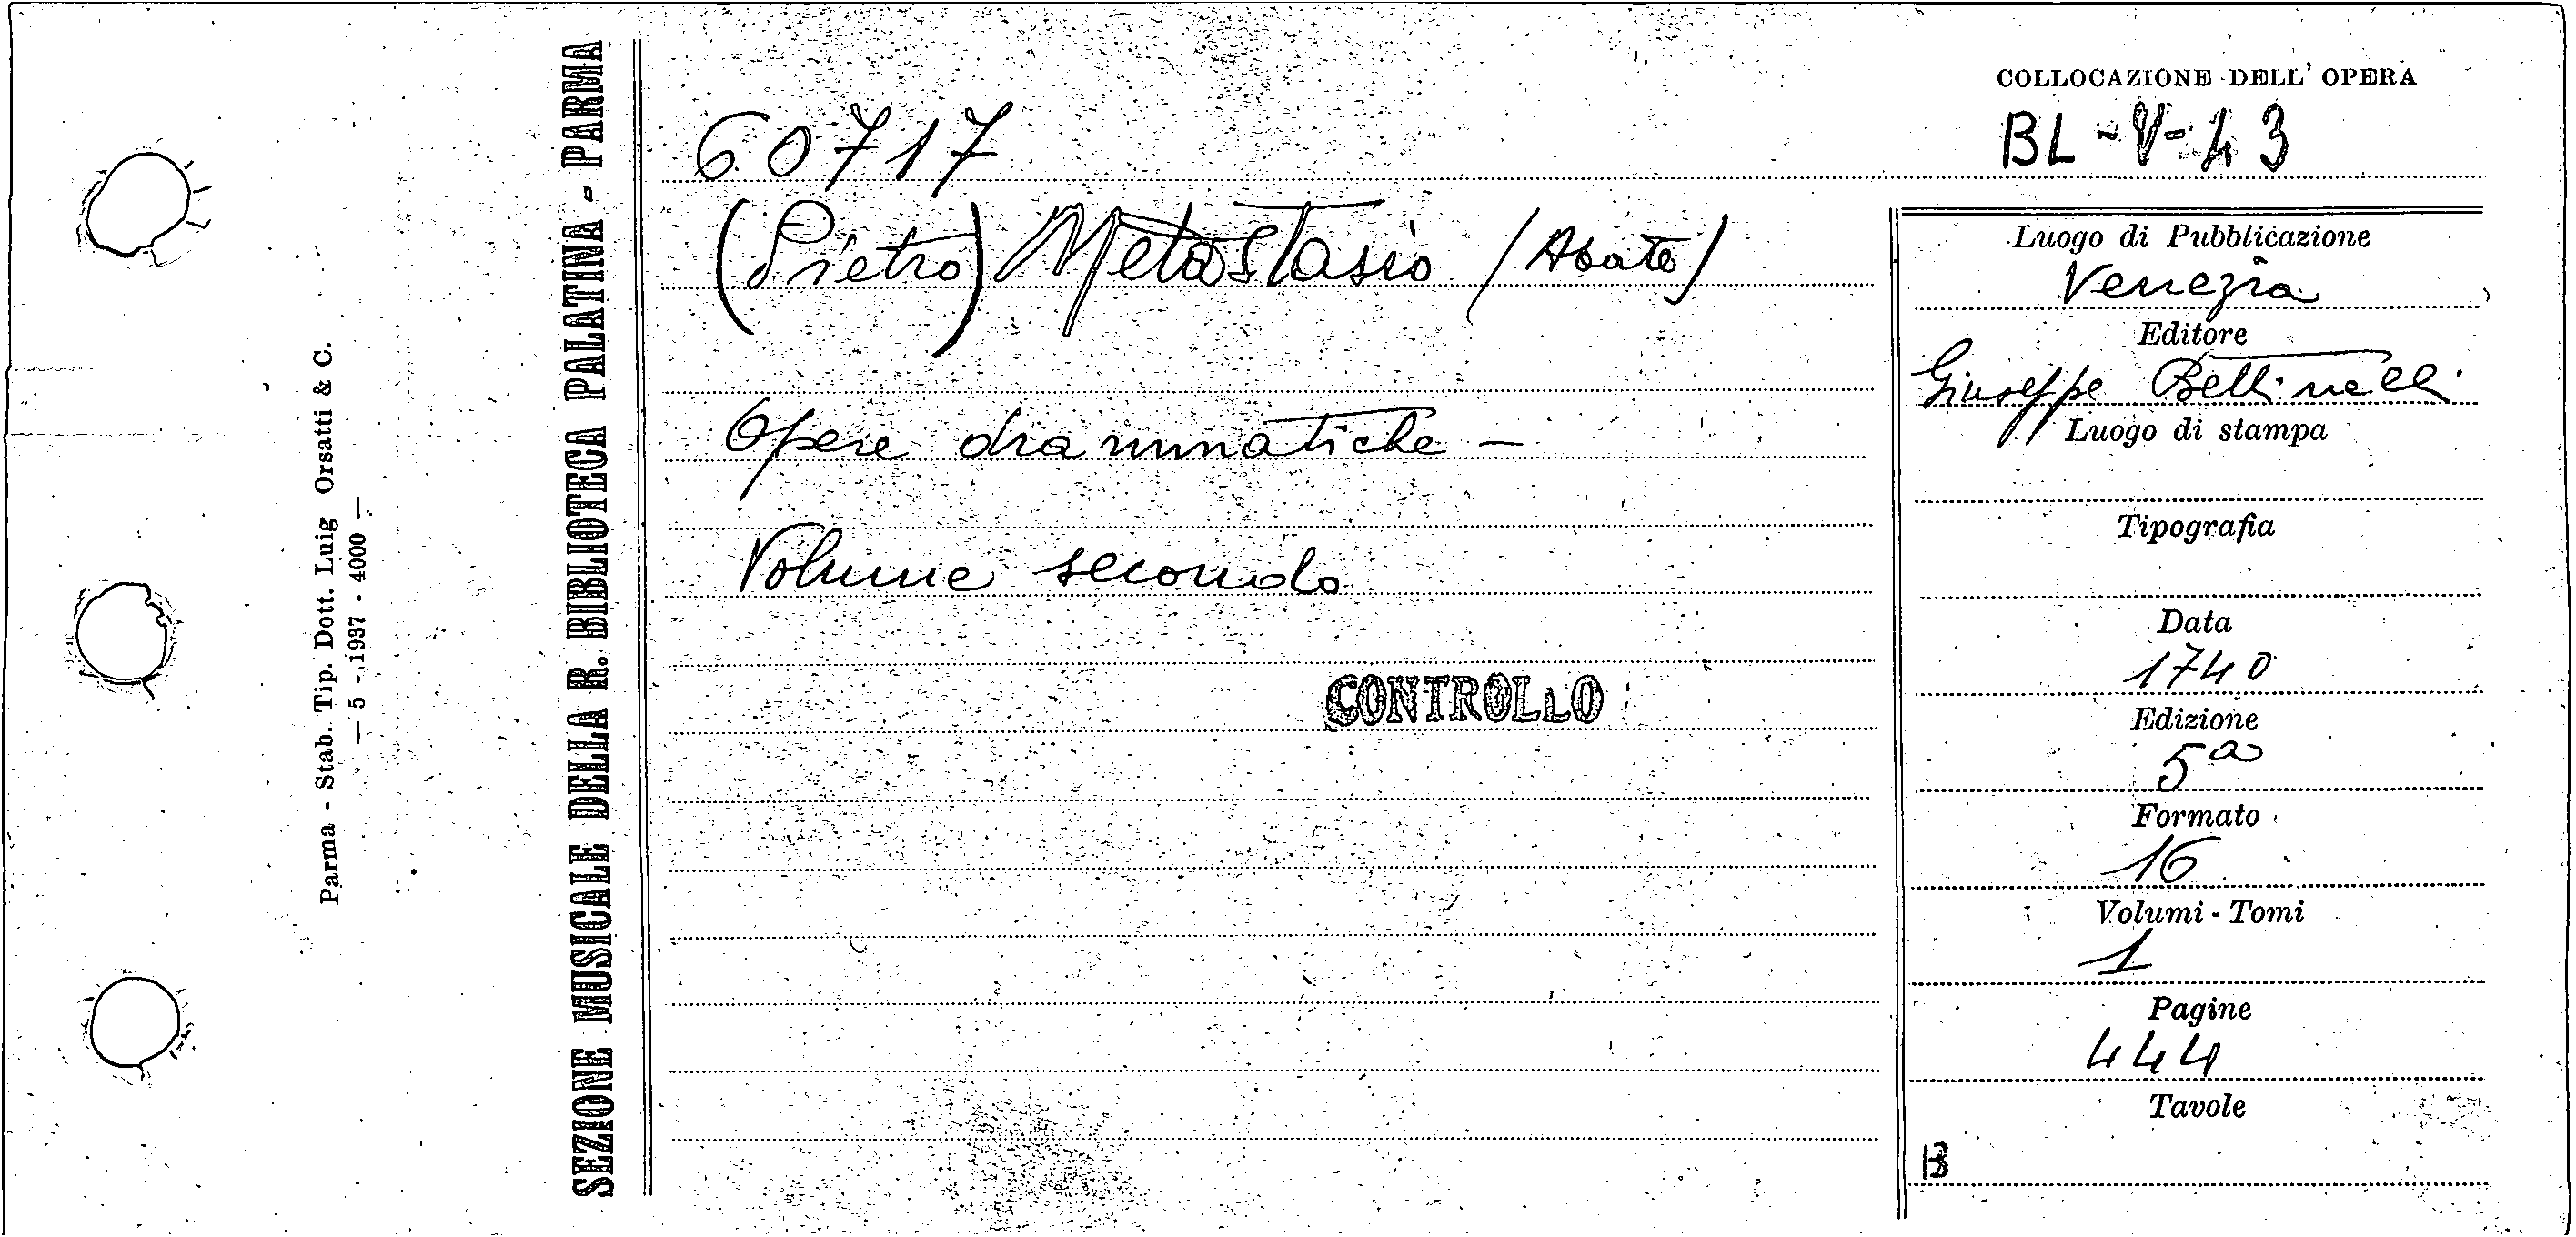 Parma - Stab. Tip. Dott. Luig Orsatti & C.
— 5 - 1937 - 4000 —
SEZIONE MUSICALE DELLA R. BIBLIOTECA PALATINA - PARMA
COLLOCAZIONE DELL' OPERA
60717
BL-V-43
(Pietro) Metastasio (Abate)
Opere drammatiche -
Volume secondo
CONTROLLO
Luogo di Pubblicazione
Venezia
Editore
Giuseppe Bettinelli
Luogo di stampa
Tipografia
Data
1740
Edizione
5a
Formato
16
Volumi - Tomi
1
Pagine
444
Tavole
B